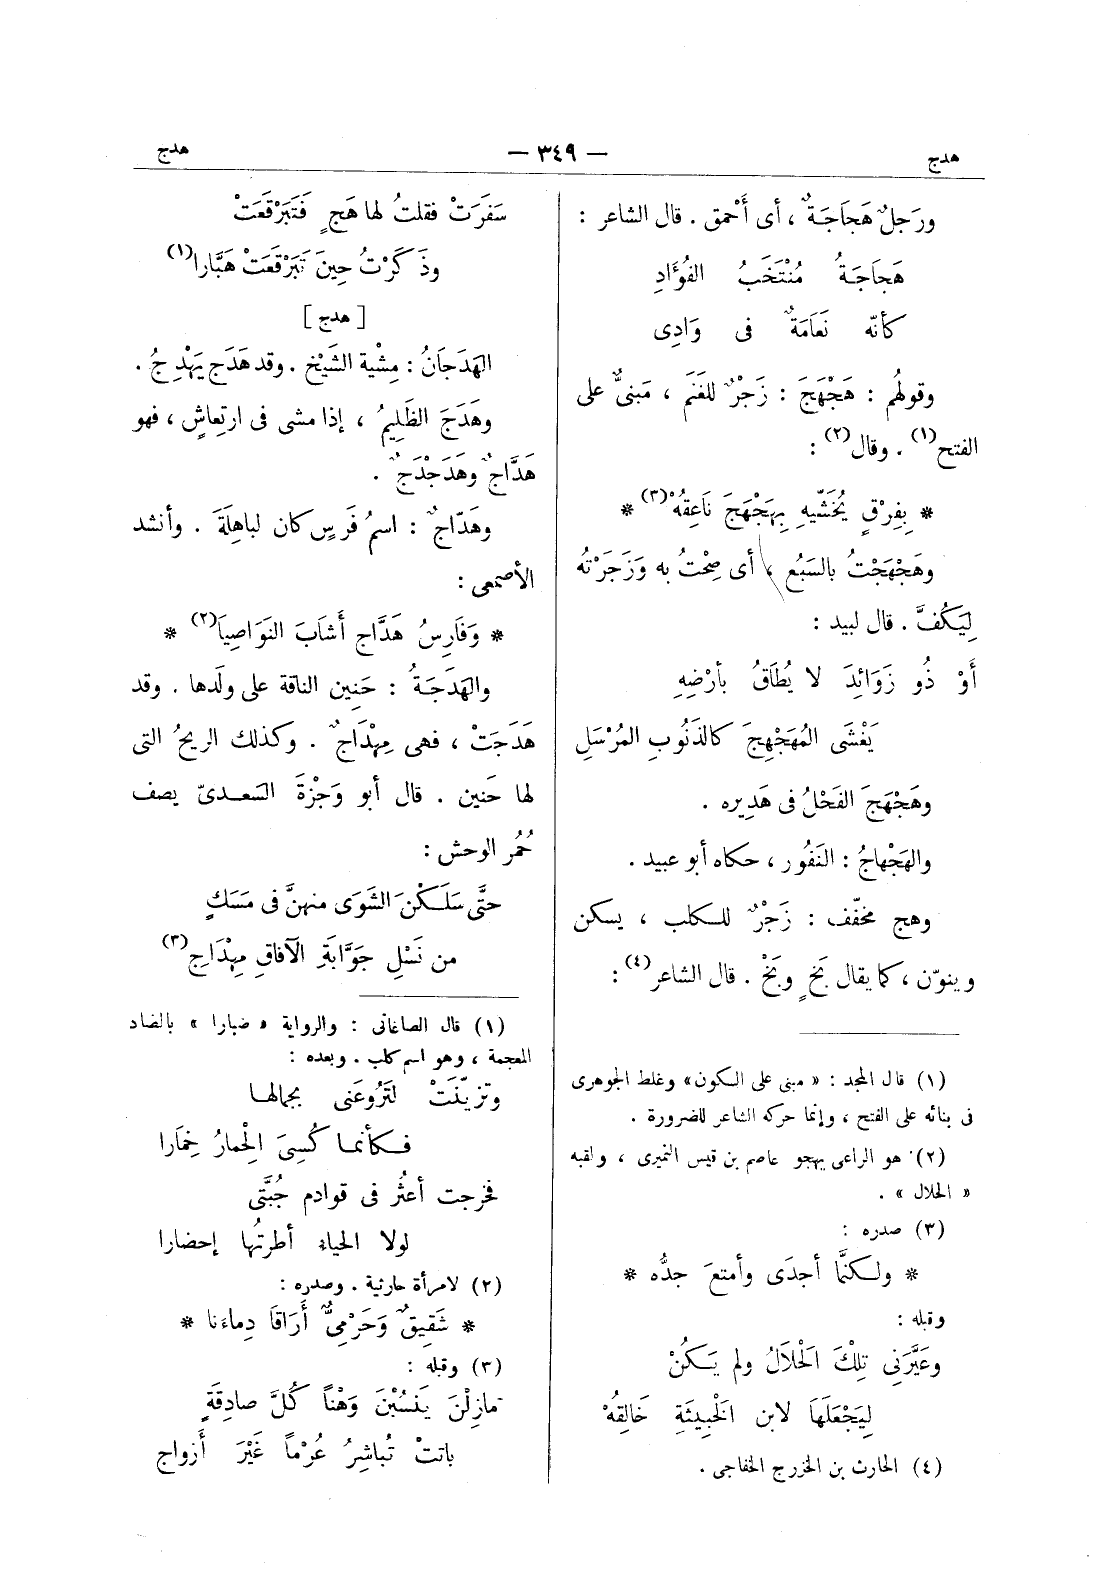 هدج
— ٣٤٩ —
هدج
ورَجلٌ هَجَاجَةٌ ، أى أَحْمق . قال الشاعر :
هَجَاجَةُ مُنْتَخَبُ الفُؤَادِ
كأنّه نَعَامَةٌ فى وَادِى
وقولهُم : هَجْهَجَ : زَجْرٌ للغَنَم ، مَبنىٌّ على
الفتح(١) . وقال(٢) :
* بِفِرْقٍ يُخَشّيهِ بِهَجْهَجَ نَاعِقُهْ(٣) *
وهَجْهَجْتُ بالسَبُع ، أى صِحْتُ به وَزَجَرْتُه
لِيَكُفَّ . قال لبيد :
أَوْ ذُو زَوَائِدَ لا يُطَاقُ بأَرْضِهِ
يَغْشَى المُهَجْهِجَ كالذَنُوبِ المُرْسَلِ
وهَجْهَجَ الفَحْلُ فى هَدِيره .
والهَجْهاجُ : النَفُور ، حكاه أبو عبيد .
وهج مخفّف : زَجْرٌ للكلب ، يسكن
وينوّن ، كما يقال بَخٍ وبَخْ . قال الشاعر(٤) :
(١) قال المجد : « مبنى على السكون» وغلط الجوهرى
فى بنائه على الفتح ، وإنما حركه الشاعر للضرورة .
(٢) هو الراعى يهجو عاصم بن قيس النميرى ، ولقبه
« الحلال » .
(٣) صدره :
* ولكنَّما أجدَى وأمتعَ جدُّه *
وقبله :
وعَيَّرَنى تِلْكَ الحَلَالُ ولم يَكُنْ
لِيَجْعَلَهَا لابن الخَبِيثَةِ خَالِقُهْ
(٤) الحارث بن الخزرج الخفاجى .
سَفَرَتْ فقلتُ لها هَجٍ فَتَبَرْقَعَتْ
وذَكَرْتُ حِينَ تَبَرْقَعَتْ هَبَّارا(١)
[ هدج ]
الهَدَجَانُ : مِشْية الشَيْخ . وقد هَدَج يَهْدِجُ .
وهَدَجَ الظَلِيمُ ، إذا مشى فى ارتِعاشٍ ، فهو
هَدَّاجٌ وهَدَجْدَجٌ .
وهَدّاجٌ : اسمُ فَرسٍ كان لباهِلَةَ . وأنشد
الأصمعى :
* وَفَارِسُ هَدَّاجٍ أَشَابَ النَوَاصِيَا(٢) *
والهَدَجَةُ : حَنِين الناقة على ولَدها . وقد
هَدَجَتْ ، فهى مِهْدَاجٌ . وكذلك الريحُ التى
لها حَنين . قال أبو وَجْزَةَ السَعدىّ يصف
حُمُر الوحش :
حتَّى سَلَكْنَ الشَوَى منهنَّ فى مَسَكٍ
من نَسْلِ جَوَّابَةِ الآفاقِ مِهْدَاجِ(٣)
(١) قال الصاغانى : والرواية « ضبارا » بالضاد
المعجمة ، وهو اسم كلب . وبعده :
وتزيّنَتْ لتَرُوعَنى بجمالها
فكأنما كُسِىَ الحِمارُ خِمَارا
فخرجت أعثُر فى قوادم جُبَّتى
لولا الحياء أطرتُها إحضارا
(٢) لامرأة حارثية . وصدره :
* شَقِيقٌ وَحَرْمِىٌّ أَرَاقَا دِماءَنا *
(٣) وقبله :
مازِلْنَ يَنسُبْنَ وَهْناً كُلَّ صادِقَةٍ
باتتْ تُباشِرُ عُرْماً غَيْرَ أزواج